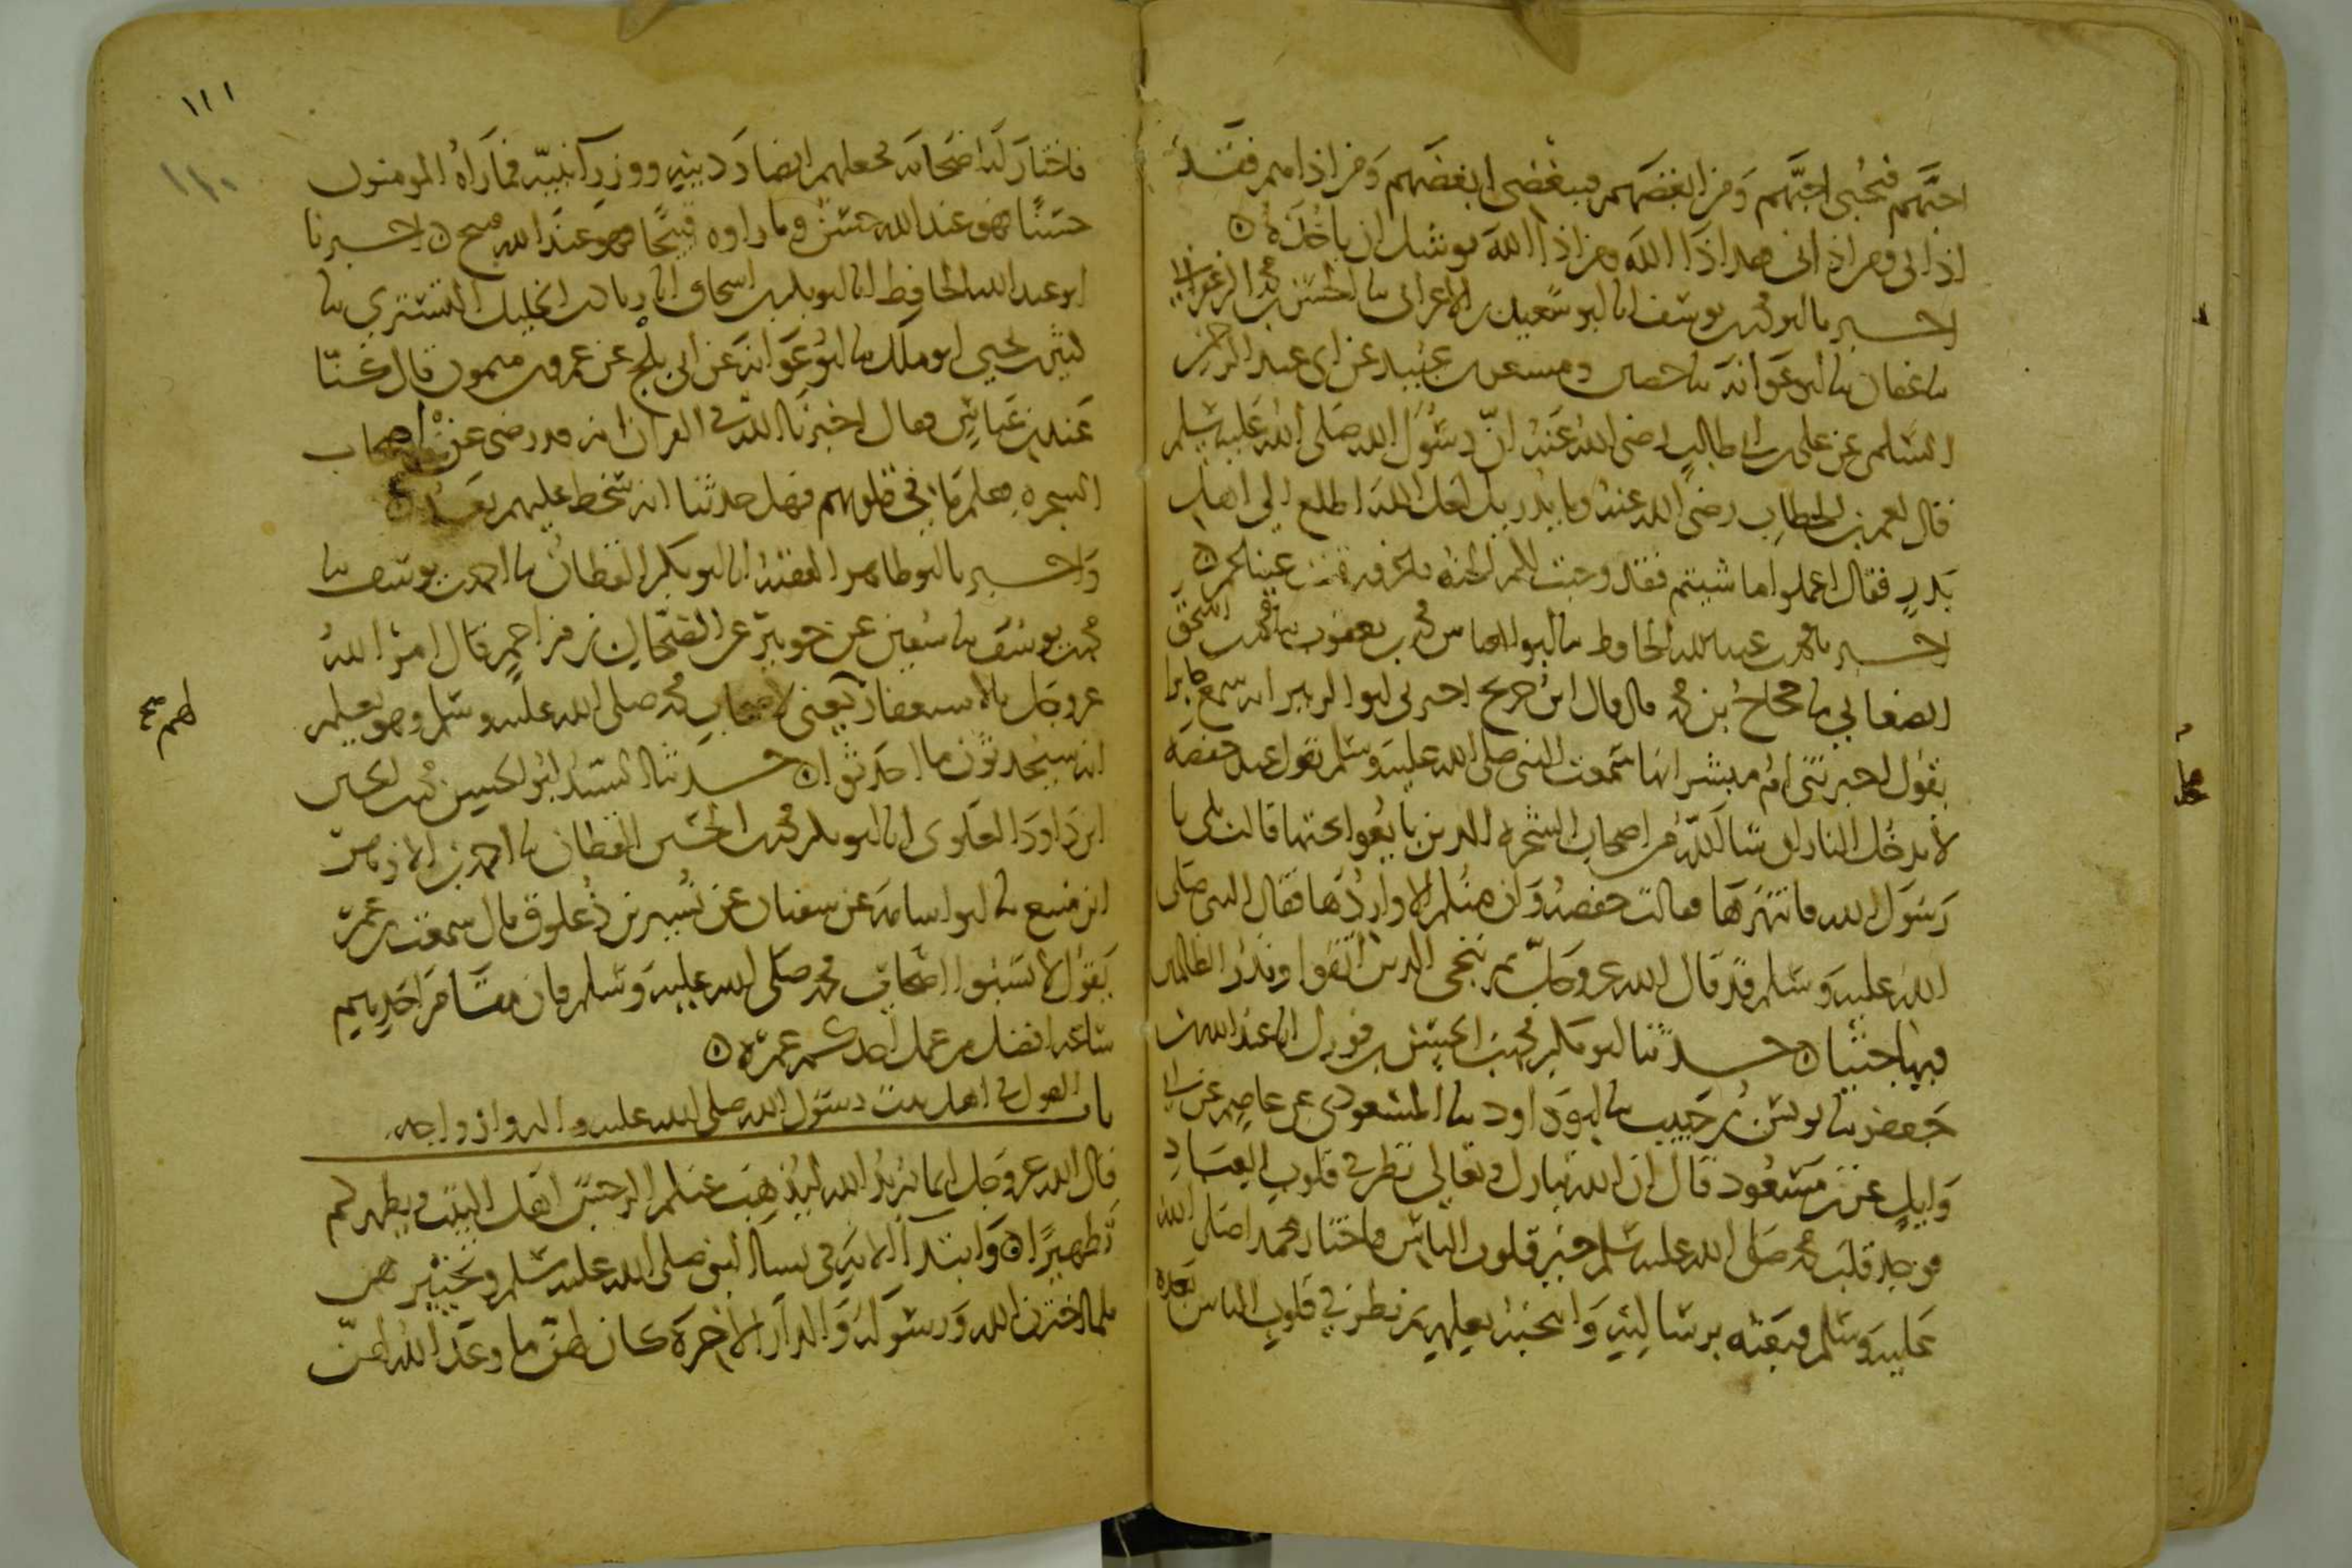 احبهم فبحبي احبهم ومن ابغضهم فببغضي ابغضهم ومن اذاهم فقد
اذاني ومن اذاني فقد اذا الله ومن اذا الله يوشك ان ياخذه ○
اخبرنا ابو محمد بن يوسف انا ابو سعيد بن الاعرابي نا الحسن بن محمد الزعفراني
نا عفان نا ابو عوانة نا حصين عن سعد بن عبيدة عن ابي عبد الرحمن
السلمي عن علي بن ابي طالب رضي الله عنه ان رسول الله صلى الله عليه وسلم
قال لعمر بن الخطاب رضي الله عنه وما يدريك لعل الله اطلع الى اهل
بدر فقال اعملوا ما شيتم فقد وجبت لكم الجنة عينا عمر ○
اخبرنا محمد بن عبد الله الحافظ نا ابو العباس محمد بن يعقوب نا محمد بن اسحق
الصغاني نا حجاج بن محمد قال قال ابن جريج اخبرني ابو الزبير انه سمع جابرا
يقول اخبرتني ام مبشر انها سمعت النبي صلى الله عليه وسلم يقول عند حفصة
لا يدخل النار ان شا الله من اصحاب الشجرة الذين بايعوا تحتها قالت بلى يا
رسول الله فانتهرها فقالت حفصة وان منكم الا واردها فقال النبي صلى
الله عليه وسلم قد قال الله عز وجل ثم ننجي الذين اتقوا ونذر الظالمين
فيها جثيا ○ حدثنا ابو بكر محمد بن الحسن بن فورك انا عبد الله بن
جعفر نا يونس بن حبيب نا ابو داود نا المسعودي عن عاصم عن ابي
وايل عن ابن مسعود قال ان الله تبارك وتعالى نظر في قلوب العباد
فوجد قلب محمد صلى الله عليه وسلم خير قلوب الناس فاختار محمدا صلى الله
عليه وسلم فبعثه برسالته وانتخبه بعلمه ثم نظر في قلوب الناس بعده
١١١
١١٠
فاختار له اصحابه فجعلهم انصار دينه ووزرآ نبيه فما رآه المومنون
حسنا فهو عند الله حسن وما راوه قبيحا فهو عند الله قبيح ○ اخبرنا
ابو عبد الله الحافظ انا ابو بكر بن اسحاق انا زياد بن الخليل التستري نا
كثير بن يحيى ابو ملك نا ابو عوانة عن ابي بلج عن عمرو بن ميمون قال كنا
عند ابن عباس فقال اخبرنا الله في القران انه قد رضي عن اصحاب
الشجره فعلم ما في قلوبهم فهل حدثنا انه سخط عليهم بعد ○
واخبرنا ابو طاهر الفقيه انا ابو بكر القطان نا احمد بن يوسف نا
محمد بن يوسف نا سفين عن جويبر عن الضحاك بن مزاحم قال امر الله
عز وجل بالاستغفار يعني لاصحاب محمد صلى الله عليه وسلم وهو يعلم
لهم صح
انه سيحدثون ما احدثوا ○ حدثنا السيد ابو الحسين محمد بن الحسين
ابن داود العلوي انا ابو بكر محمد بن الحسين القطان نا احمد بن الازهر
نا ابو اسامة عن سفيان عن نسير بن ذعلوق قال سمعت ابن عمر
يقول لا تسبوا اصحاب محمد صلى الله عليه وسلم فان مقام احدهم
ساعة افضل من عمل احدكم عمره ○
باب القول في اهل بيت رسول الله صلى الله عليه واله وازواجه
قال الله عز وجل انما يريد الله ليذهب عنكم الرجس اهل البيت ويطهركم
تطهيرا ○ وابتدآ الاية في نسآ النبي صلى الله عليه وسلم وتخييرهن
فلما اخترن الله ورسوله والدار الاخرة كان لهن ما وعد الله لهن